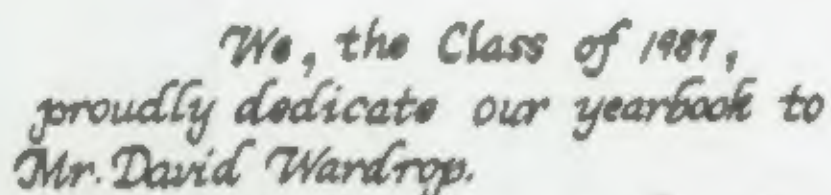 We, the Class of 1987,
proudly dedicate our yearbook to
Mr. David Wardrop.